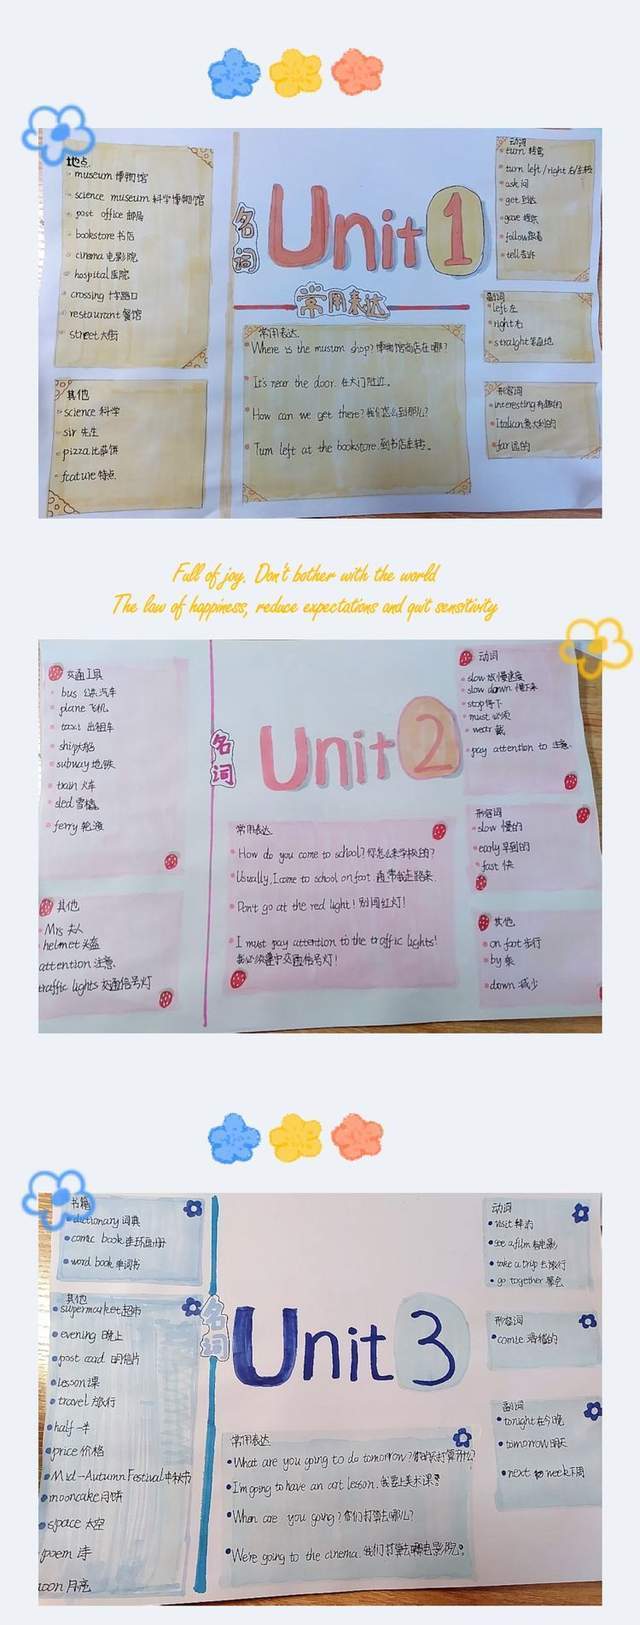 地点
museum 博物馆
science museum 科学博物馆
post office 邮局
bookstore 书店
cinema 电影院
hospital 医院
crossing 十字路口
restaurant 餐馆
street 大街
其他
science 科学
sir 先生
pizza 比萨饼
feature 特点
名词
Unit 1
常用表达
常用表达
Where is the musum shop? 博物馆商店在哪?
It's near the door. 在大门附近。
How can we get there? 我们怎么到那儿?
Turn left at the bookstore. 到书店左转。
动词
turn 转弯
turn left/right 右/左转
ask 问
get 到达
gave
follow 跟着
tell 告诉
副词
left 左
right 右
straight 笔直地
形容词
interesting 有趣的
Italian 意大利的
far 远的
Full of joy. Don't bother with the world
The law of happiness, reduce expectations and quit sensitivity
交通工具
bus 公共汽车
plane 飞机
taxi 出租车
ship 大船
subway 地铁
train 火车
sled 雪橇
ferry 轮渡
其他
Mrs 夫人
helmet 头盔
attention 注意
traffic lights 交通信号灯
名词
Unit 2
常用表达
How do you come to school? 你怎么来学校的?
Usually, I come to school on foot. 通常我走路来.
Don't go at the red light! 别闯红灯!
I must pay attention to the traffic lights!
我必须遵守交通信号灯!
动词
slow 放慢速度
slow down 慢下来
stop 停下
must 必须
wear 戴
pay attention to 注意
形容词
slow 慢的
early 早到的
fast 快
其他
on foot 步行
by 乘
down 减少
书籍
dictionary 词典
comic book 连环画册
word book 单词书
其他
supermarket 超市
evening 晚上
post card 明信片
lesson 课
travel 旅行
half 一半
price 价格
Mid-Autumn Festival 中秋节
mooncake 月饼
space 太空
poem 诗
oon 月亮
名词
Unit 3
常用表达
What are you going to do tomorrow? 你明天打算做什么?
I'm going to have an art lesson. 我要上美术课。
When are you going? 你们打算去哪儿?
We're going to the cinema. 我们打算去电影院。
动词
visit 拜访
see a film 看电影
take a trip 去旅行
go together 聚会
形容词
comic 滑稽的
副词
tonight 在今晚
tomorrow 明天
next week 下周